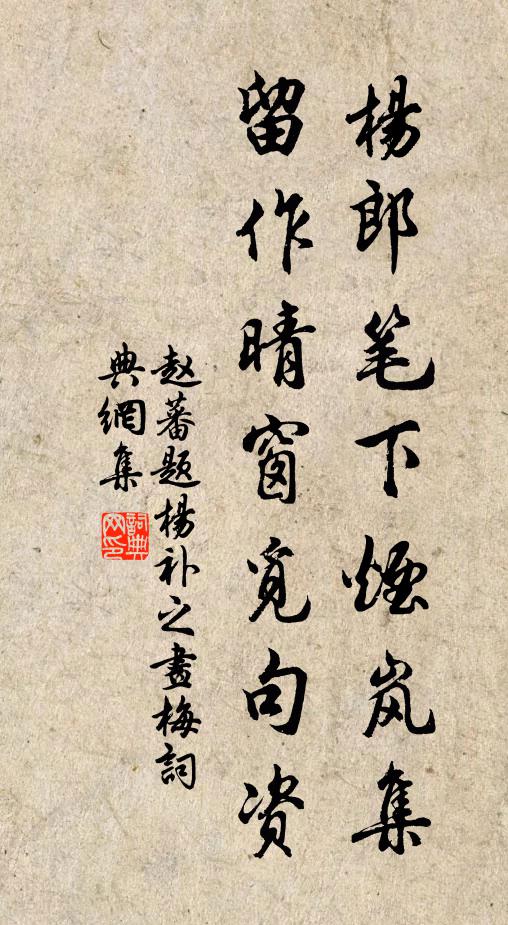 楊郎笔下煙岚集
留作晴窗覓句资
赵蕃题楊补之畫梅詞
典網集
詞典网印